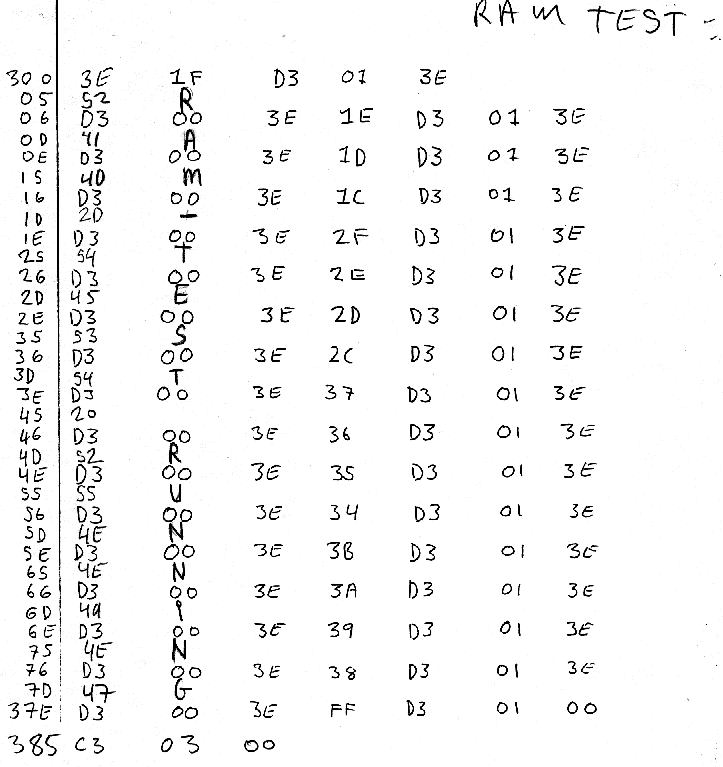 RAM TEST -
300 3E 1F D3 01 3E
05 52 R
06 D3 00 3E 1E D3 01 3E
0D 41 A
0E D3 00 3E 1D D3 01 3E
15 4D M
16 D3 00 3E 1C D3 01 3E
1D 2D -
1E D3 00 3E 2F D3 01 3E
25 54 T
26 D3 00 3E 2E D3 01 3E
2D 45 E
2E D3 00 3E 2D D3 01 3E
35 53 S
36 D3 00 3E 2C D3 01 3E
3D 54 T
3E D3 00 3E 37 D3 01 3E
45 20
46 D3 00 3E 36 D3 01 3E
4D 52 R
4E D3 00 3E 35 D3 01 3E
55 55 U
56 D3 00 3E 34 D3 01 3E
5D 4E N
5E D3 00 3E 3B D3 01 3E
65 4E N
66 D3 00 3E 3A D3 01 3E
6D 49 I
6E D3 00 3E 39 D3 01 3E
75 4E N
76 D3 00 3E 38 D3 01 3E
7D 47 G
37E D3 00 3E FF D3 01 00
385 C3 03 00